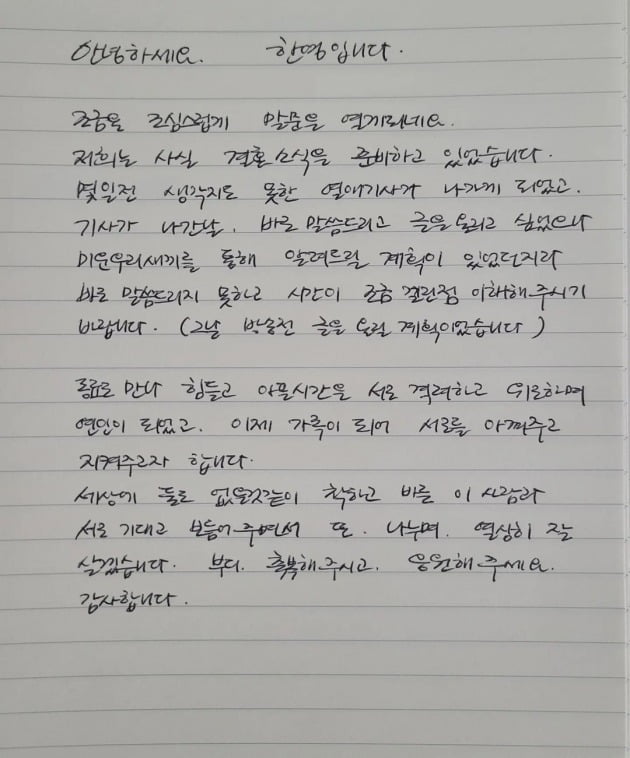 안녕하세요. 한영입니다.
조금은 조심스럽게 말문을 열게되네요.
저희는 사실 결혼소식을 준비하고 있었습니다.
몇일전 생각지도 못한 열애기사가 나가게 되었고.
기사가 나간날. 바로 말씀드리고 글을올리고 싶었으나
미운우리새끼를 통해 알려드릴 계획이 있었던지라
바로 말씀드리지 못하고 시간이 조금 걸린점 이해해주시기
바랍니다. (그날 방송전 글을 올릴 계획이었습니다)
동료로 만나 힘들고 아플시간을 서로 격려하고 위로하며
연인이 되었고. 이제 가족이 되어 서로를 아껴주고
지켜주고자 합니다.
세상에 둘로 없을것같이 착하고 바른 이 사람과
서로 기대고 보듬어주면서 또. 나누며. 열심히 잘
살겠습니다. 부디. 축복해주시고. 응원해주세요.
감사합니다.